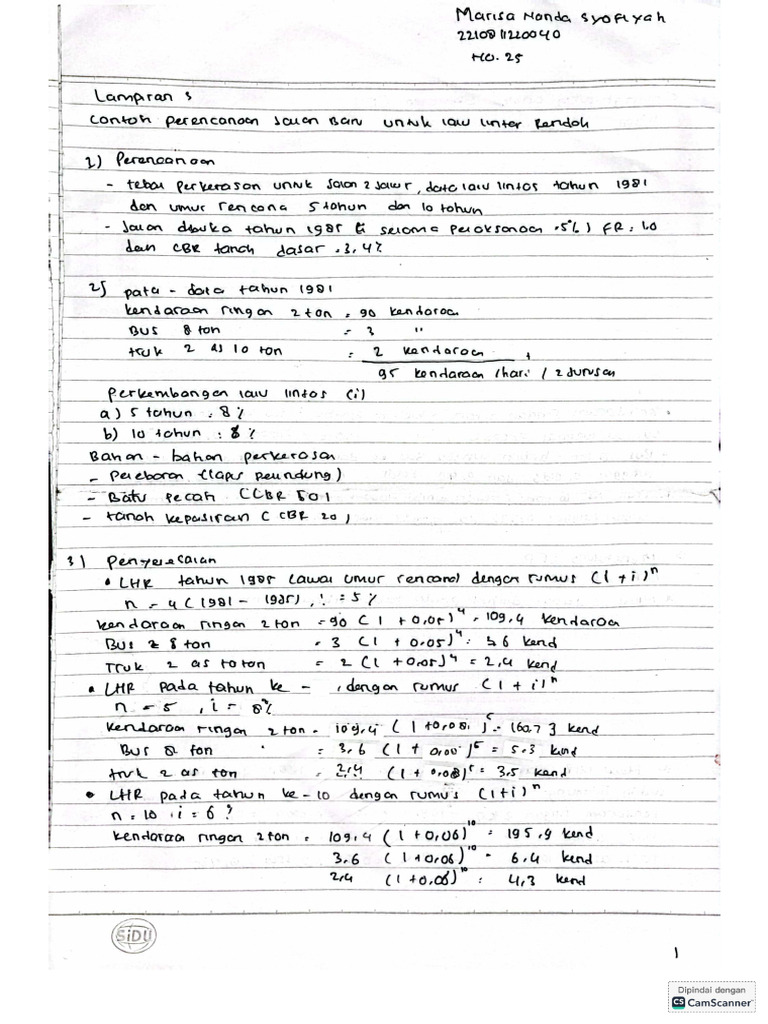 Marisa Nanda Syofiyah
2210811220040
No. 25
Lampiran 3
Contoh perencanaan Jalan Baru untuk lalu lintas Rendah
1) Perencanaan
- tebal perkerasan untuk jalan 2 jalur, data lalu lintas tahun 1981
dan umur rencana 5 tahun dan 10 tahun
- Jalan dibuka tahun 1985 (i selama pelaksanaan = 5%) FR = 1.0
dan CBR tanah dasar = 3,4%
2) Data - data tahun 1981
kendaraan ringan 2 ton = 90 kendaraan
BUS 8 ton = 3 "
truk 2 as 10 ton = 2 kendaraan +
95 kendaraan /hari / 2 jurusan
Perkembangan lalu lintas (i)
a) 5 tahun = 8%
b) 10 tahun = 6%
Bahan - bahan perkerasan
- Peleburan (lapis pelindung)
- Batu pecah (CBR 50)
- tanah kepasiran (CBR 20)
3) Penyelesaian
• LHR tahun 1985 (awal umur rencana) dengan rumus (1 + i)ⁿ
n = 4 (1981 - 1985), i = 5%
kendaraan ringan 2 ton = 90 (1 + 0,05)⁴ = 109,4 kendaraan
Bus 8 ton = 3 (1 + 0.05)⁴ = 3.6 kend
Truk 2 as 10 ton = 2 (1 + 0.05)⁴ = 2,4 kend
• LHR pada tahun ke - , dengan rumus (1 + i)ⁿ
n = 5 , i = 8%
kendaraan ringan 2 ton = 109,4 (1 + 0,08)⁵ = 160,73 kend
Bus 8 ton = 3,6 (1 + 0.08)⁵ = 5.3 kend
truk 2 as ton = 2,4 (1 + 0,08)⁵ = 3.5 kend
• LHR pada tahun ke-10 dengan rumus (1+i)ⁿ
n = 10 , i = 6%
kendaraan ringan 2 ton = 109.4 (1 + 0,06)¹⁰ = 195,9 kend
3,6 (1 + 0,06)¹⁰ = 6.4 kend
2,4 (1 + 0,06)¹⁰ = 4,3 kend
SIDU
1
Dipindai dengan
CS CamScanner